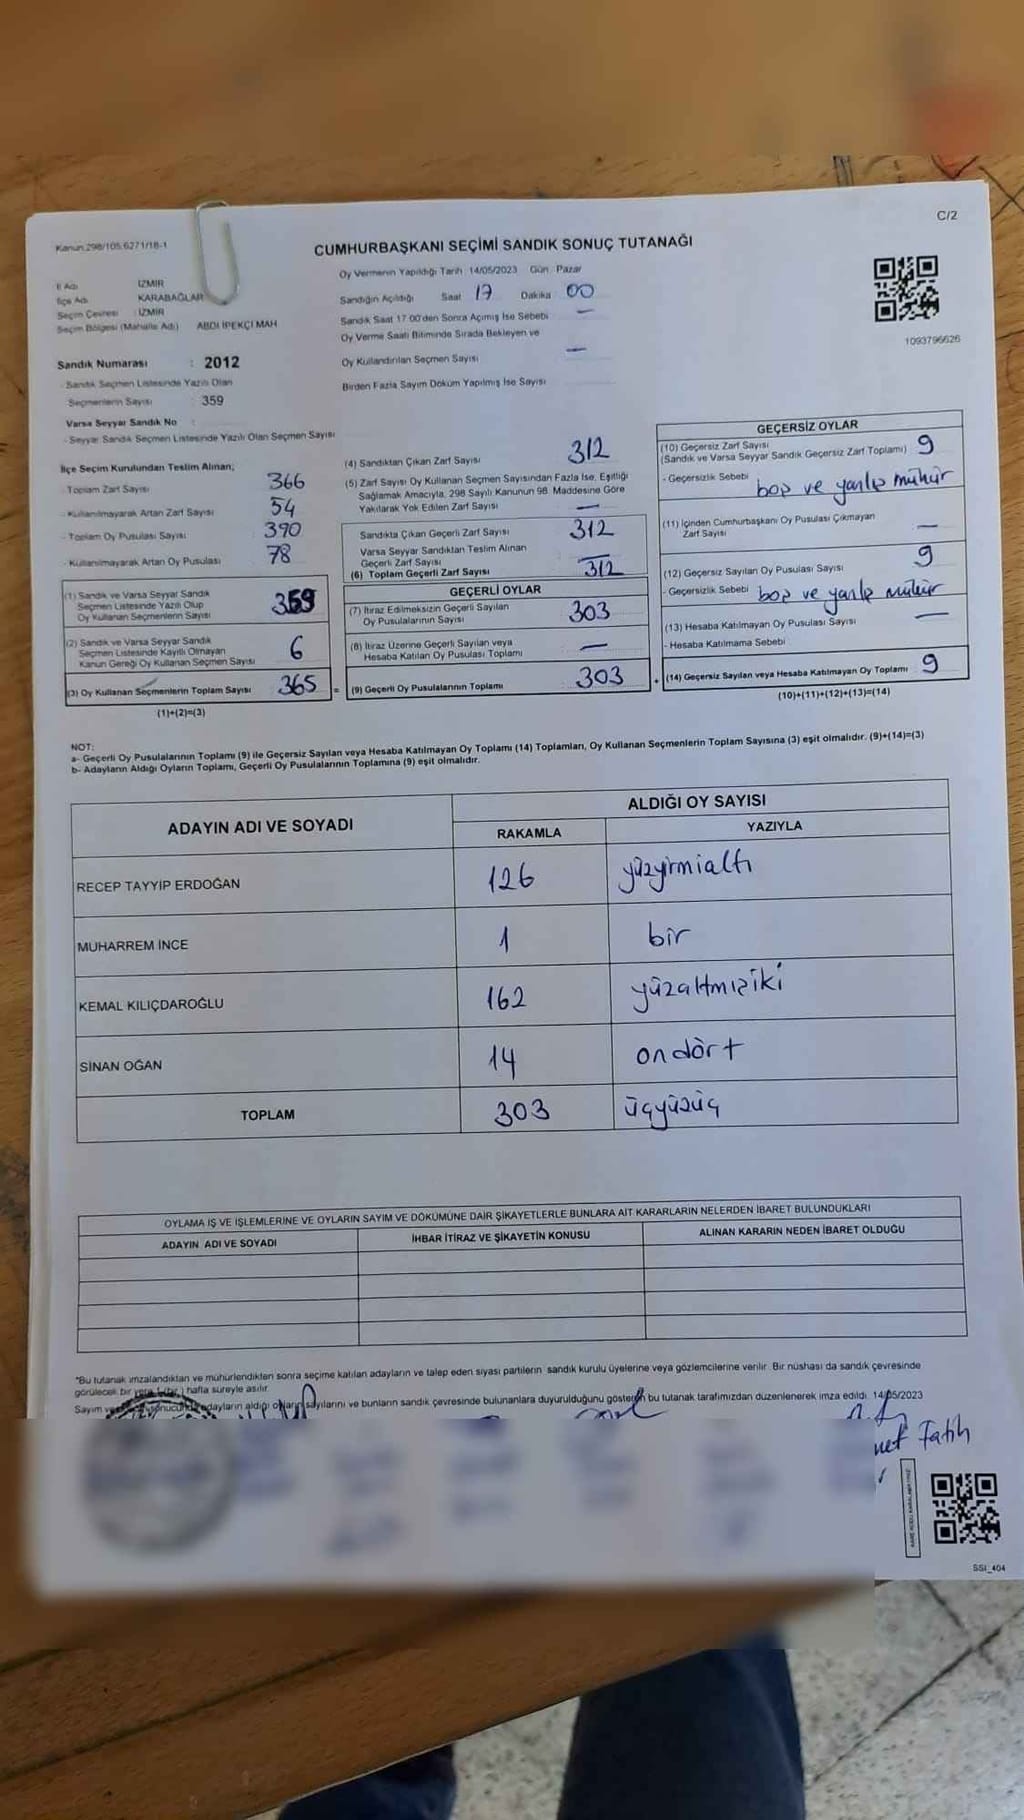 C/2
Kanun 298/105.6271/18-1
CUMHURBAŞKANI SEÇİMİ SANDIK SONUÇ TUTANAĞI
İl Adı İZMİR
İlçe Adı KARABAĞLAR
Seçim Çevresi : İZMİR
Seçim Bölgesi (Mahalle Adı) ABDİ İPEKÇİ MAH
Oy Vermenin Yapıldığı Tarih 14/05/2023 Gün Pazar
Sandığın Açıldığı Saat 17 Dakika 00
Sandık Saat 17 00'den Sonra Açımış İse Sebebi —
Oy Verme Saati Bitiminde Sırada Bekleyen ve
Oy Kullandırılan Seçmen Sayısı —
Birden Fazla Sayım Döküm Yapılmış İse Sayısı
1093796626
Sandık Numarası : 2012
- Sandık Seçmen Listesinde Yazılı Olan
Seçmenlerin Sayısı : 359
Varsa Seyyar Sandık No :
- Seyyar Sandık Seçmen Listesinde Yazılı Olan Seçmen Sayısı
İlçe Seçim Kurulundan Teslim Alınan;
- Toplam Zarf Sayısı 366
- Kullanılmayarak Artan Zarf Sayısı 54
- Toplam Oy Pusulası Sayısı 390
- Kullanılmayarak Artan Oy Pusulası 78
(1) Sandık ve Varsa Seyyar Sandık
Seçmen Listesinde Yazılı Olup
Oy Kullanan Seçmenlerin Sayısı 359
(2) Sandık ve Varsa Seyyar Sandık
Seçmen Listesinde Kayıtlı Olmayan
Kanun Gereği Oy Kullanan Seçmen Sayısı 6
(3) Oy Kullanan Seçmenlerin Toplam Sayısı 365 =
(1)+(2)=(3)
(4) Sandıktan Çıkan Zarf Sayısı 312
(5) Zarf Sayısı Oy Kullanan Seçmen Sayısından Fazla İse, Eşitliği
Sağlamak Amacıyla, 298 Sayılı Kanunun 98. Maddesine Göre
Yakılarak Yok Edilen Zarf Sayısı —
Sandıkta Çıkan Geçerli Zarf Sayısı 312
Varsa Seyyar Sandıktan Teslim Alınan
Geçerli Zarf Sayısı —
(6) Toplam Geçerli Zarf Sayısı 312
GEÇERLİ OYLAR
(7) İtiraz Edilmeksizin Geçerli Sayılan
Oy Pusulalarının Sayısı : 303
(8) İtiraz Üzerine Geçerli Sayılan veya
Hesaba Katılan Oy Pusulası Toplamı : —
(9) Geçerli Oy Pusulalarının Toplamı : 303 +
GEÇERSİZ OYLAR
(10) Geçersiz Zarf Sayısı
(Sandık ve Varsa Seyyar Sandık Geçersiz Zarf Toplamı) 9
- Geçersizlik Sebebi boş ve yanlış mühür
(11) İçinden Cumhurbaşkanı Oy Pusulası Çıkmayan
Zarf Sayısı —
(12) Geçersiz Sayılan Oy Pusulası Sayısı 9
- Geçersizlik Sebebi boş ve yanlış mühür
(13) Hesaba Katılmayan Oy Pusulası Sayısı —
- Hesaba Katılmama Sebebi
(14) Geçersiz Sayılan veya Hesaba Katılmayan Oy Toplamı 9
(10)+(11)+(12)+(13)=(14)
NOT:
a- Geçerli Oy Pusulalarının Toplamı (9) ile Geçersiz Sayılan veya Hesaba Katılmayan Oy Toplamı (14) Toplamları, Oy Kullanan Seçmenlerin Toplam Sayısına (3) eşit olmalıdır. (9)+(14)=(3)
b- Adayların Aldığı Oyların Toplamı, Geçerli Oy Pusulalarının Toplamına (9) eşit olmalıdır.
ADAYIN ADI VE SOYADI ALDIĞI OY SAYISI
RAKAMLA YAZIYLA
RECEP TAYYIP ERDOĞAN 126 yüzyirmialtı
MUHARREM İNCE 1 bir
KEMAL KILIÇDAROĞLU 162 yüzaltmışiki
SİNAN OĞAN 14 ondört
TOPLAM 303 üçyüzüç
OYLAMA İŞ VE İŞLEMLERİNE VE OYLARIN SAYIM VE DÖKÜMÜNE DAİR ŞİKAYETLERLE BUNLARA AİT KARARLARIN NELERDEN İBARET BULUNDUKLARI
ADAYIN ADI VE SOYADI İHBAR İTİRAZ VE ŞİKAYETİN KONUSU ALINAN KARARIN NEDEN İBARET OLDUĞU
*Bu tutanak imzalandıktan ve mühürlendikten sonra seçime katılan adayların ve talep eden siyasi partilerin sandık kurulu üyelerine veya gözlemcilerine verilir. Bir nüshası da sandık çevresinde
görülecek bir yere 1 (bir) hafta süreyle asılır.
Sayım ve sonucunda adayların aldığı oyların sayılarını ve bunların sandık çevresinde bulunanlara duyurulduğunu gösteren bu tutanak tarafımızdan düzenlenerek imza edildi. 14/05/2023
Fatih
SSI_404